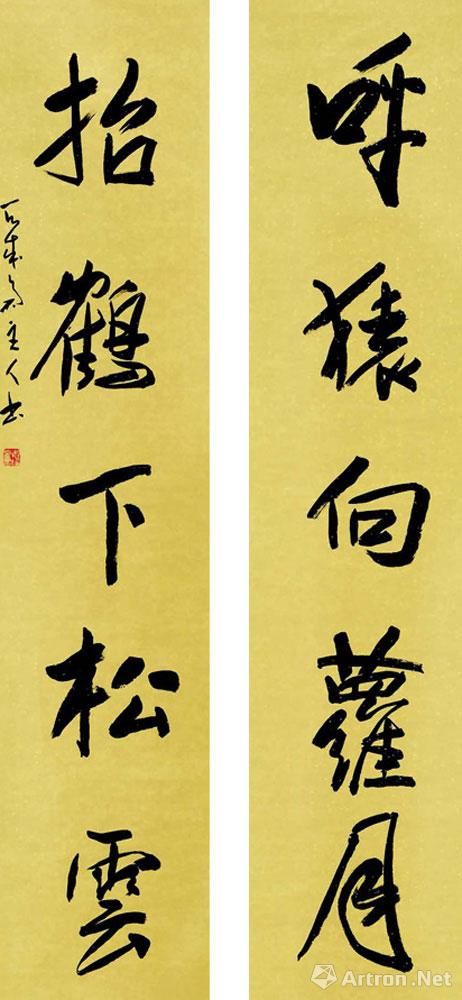 呼猿向蘿月
招鶴下松雲
主人书
Artron.Net